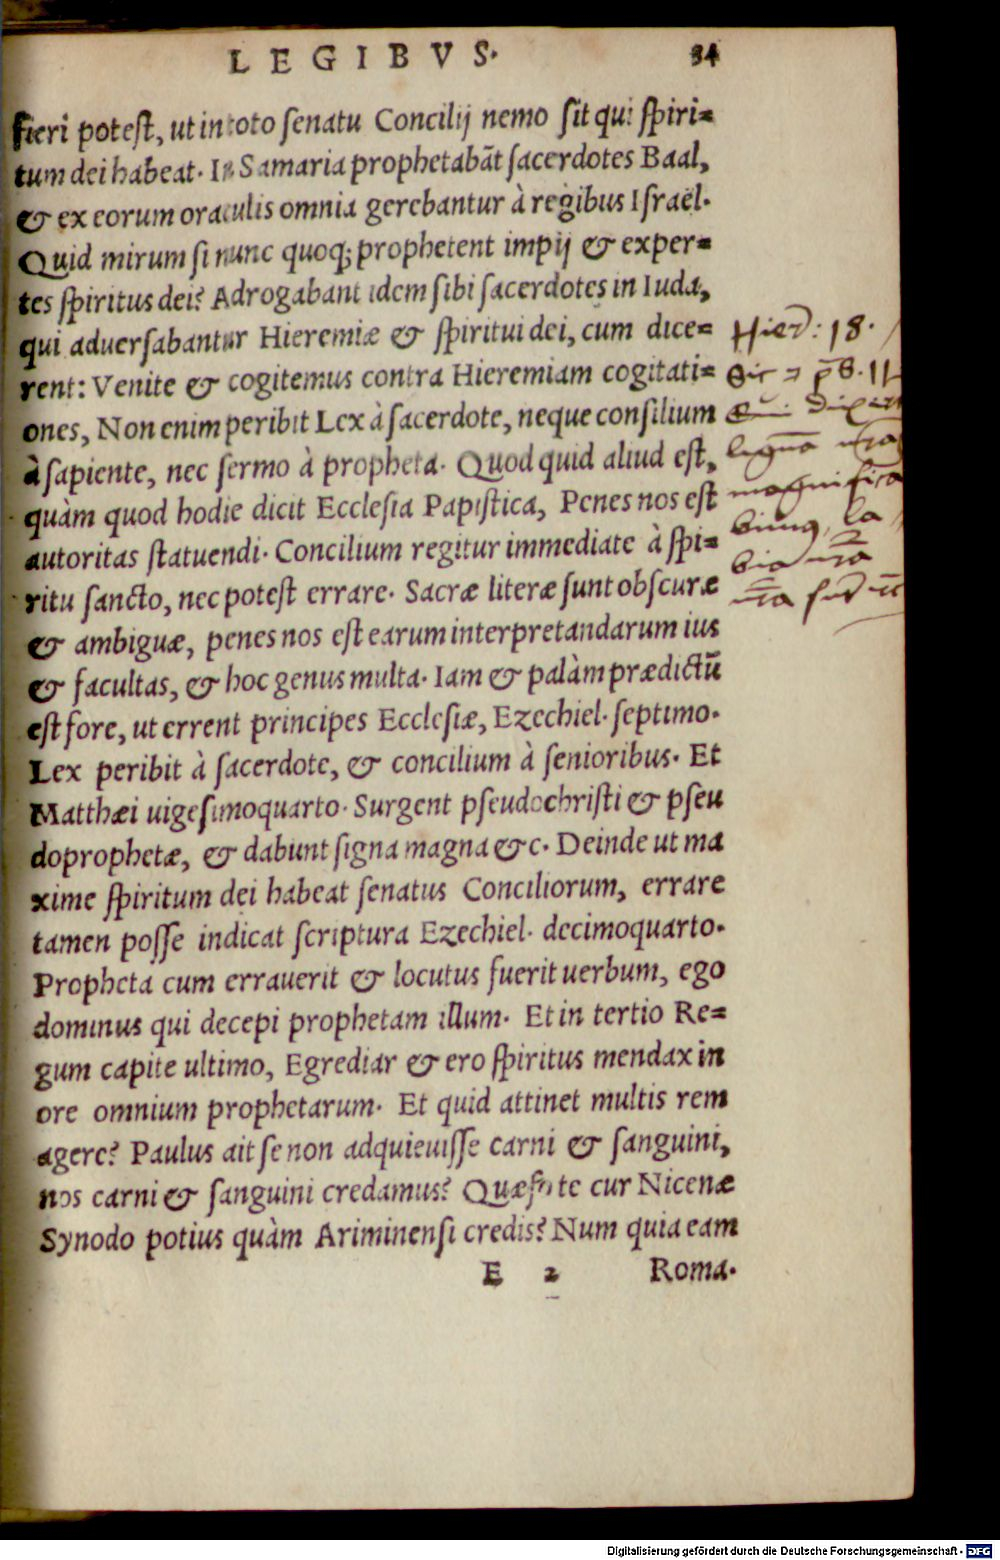 LEGIBVS. 34
fieri potest, ut in toto senatu Concilij nemo sit qui spiri=
tum dei habeat. In Samaria prophetabãt sacerdotes Baal,
& ex eorum oraculis omnia gerebantur à regibus Israël.
Quid mirum si nunc quoq; prophetent impij & exper=
tes spiritus dei? Adrogabant idem sibi sacerdotes in Iuda,
qui aduersabantur Hieremiæ & spiritui dei, cum dice=
rent: Venite & cogitemus contra Hieremiam cogitati=
ones, Non enim peribit Lex à sacerdote, neque consilium
à sapiente, nec sermo à propheta. Quod quid aliud est,
quàm quod hodie dicit Ecclesia Papistica, Penes nos est
autoritas statuendi. Concilium regitur immediate à spi=
ritu sancto, nec potest errare. Sacræ literæ sunt obscuræ
& ambiguæ, penes nos est earum interpretandarum ius
& facultas, & hoc genus multa. Iam & palàm prædictũ
est fore, ut errent principes Ecclesiæ, Ezechiel. septimo.
Lex peribit à sacerdote, & concilium à senioribus. Et
Matthæi uigesimoquarto. Surgent pseudochristi & pseu
doprophetæ, & dabunt signa magna &c. Deinde ut ma
xime spiritum dei habeat senatus Conciliorum, errare
tamen posse indicat scriptura Ezechiel. decimoquarto.
Propheta cum errauerit & locutus fuerit uerbum, ego
dominus qui decepi prophetam illum. Et in tertio Re=
gum capite ultimo, Egrediar & ero spiritus mendax in
ore omnium prophetarum. Et quid attinet multis rem
agere? Paulus ait se non adquieuisse carni & sanguini,
nos carni & sanguini credamus? Quæso te cur Nicenæ
Synodo potius quàm Ariminensi credis? Num quia eam
E 2 Roma.
Hier: 18.
Sic 11
magnifica
bimus, la
bia nr̃a